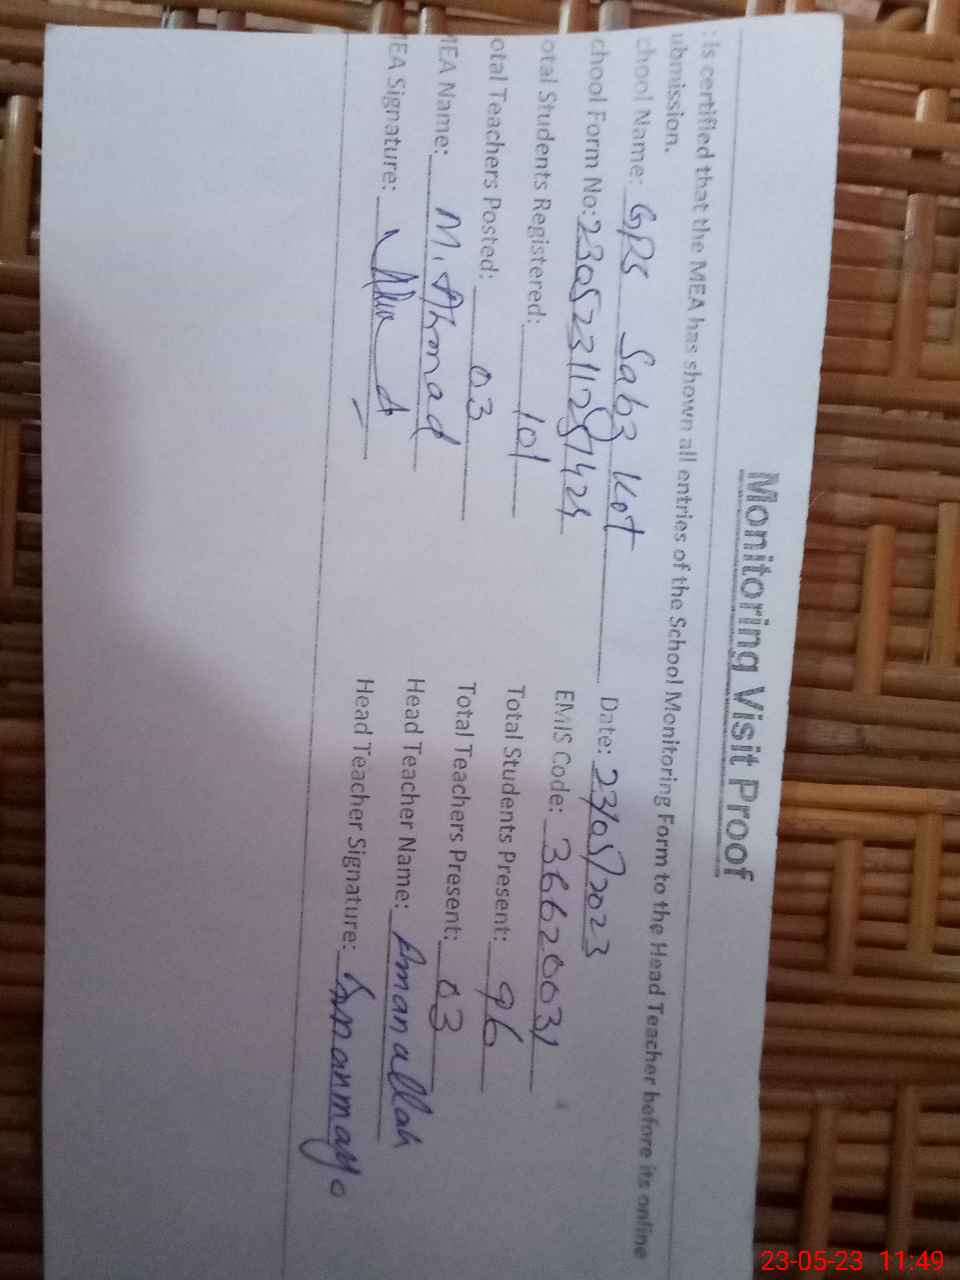 Monitoring Visit Proof
: is certified that the MEA has shown all entries of the School Monitoring Form to the Head Teacher before its online
ubmission.
chool Name: GPS Sabz Kot Date: 23/05/2023
chool Form No: EMIS Code: 36620031
otal Students Registered: 101 Total Students Present: 96
otal Teachers Posted: 03 Total Teachers Present: 03
MEA Name: M. Ahmad Head Teacher Name: Amanallah
MEA Signature: Head Teacher Signature:
23-05-23 11:49